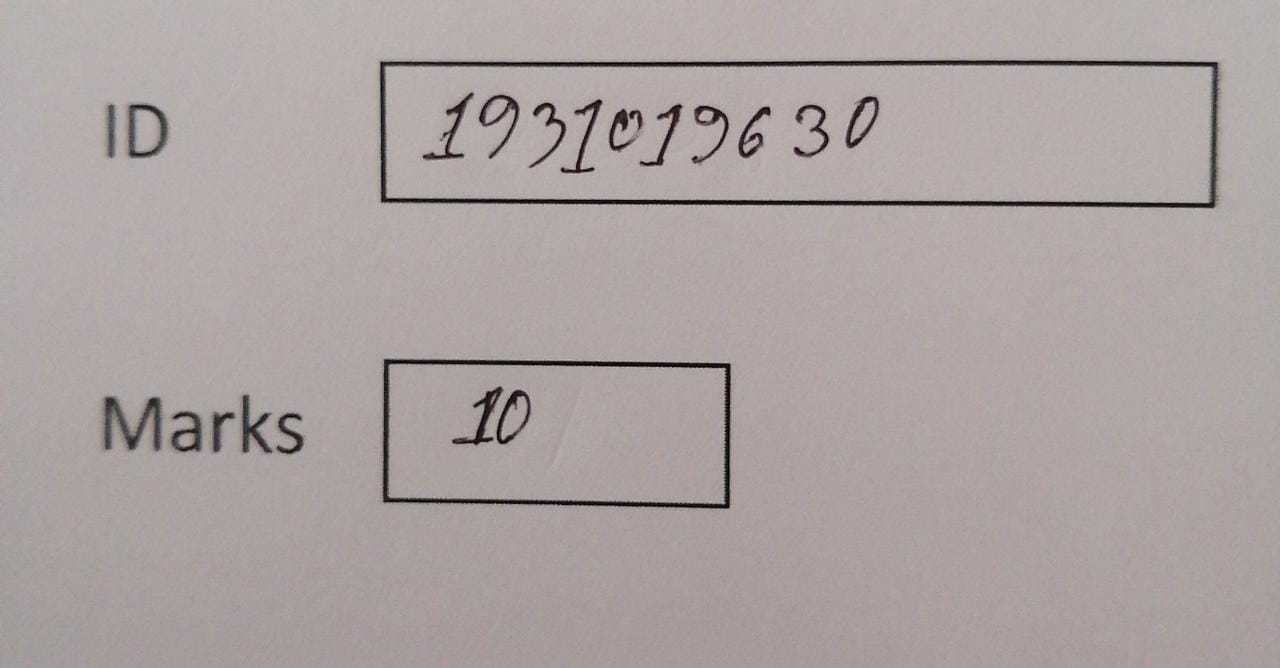 ID 1931019630
Marks 10